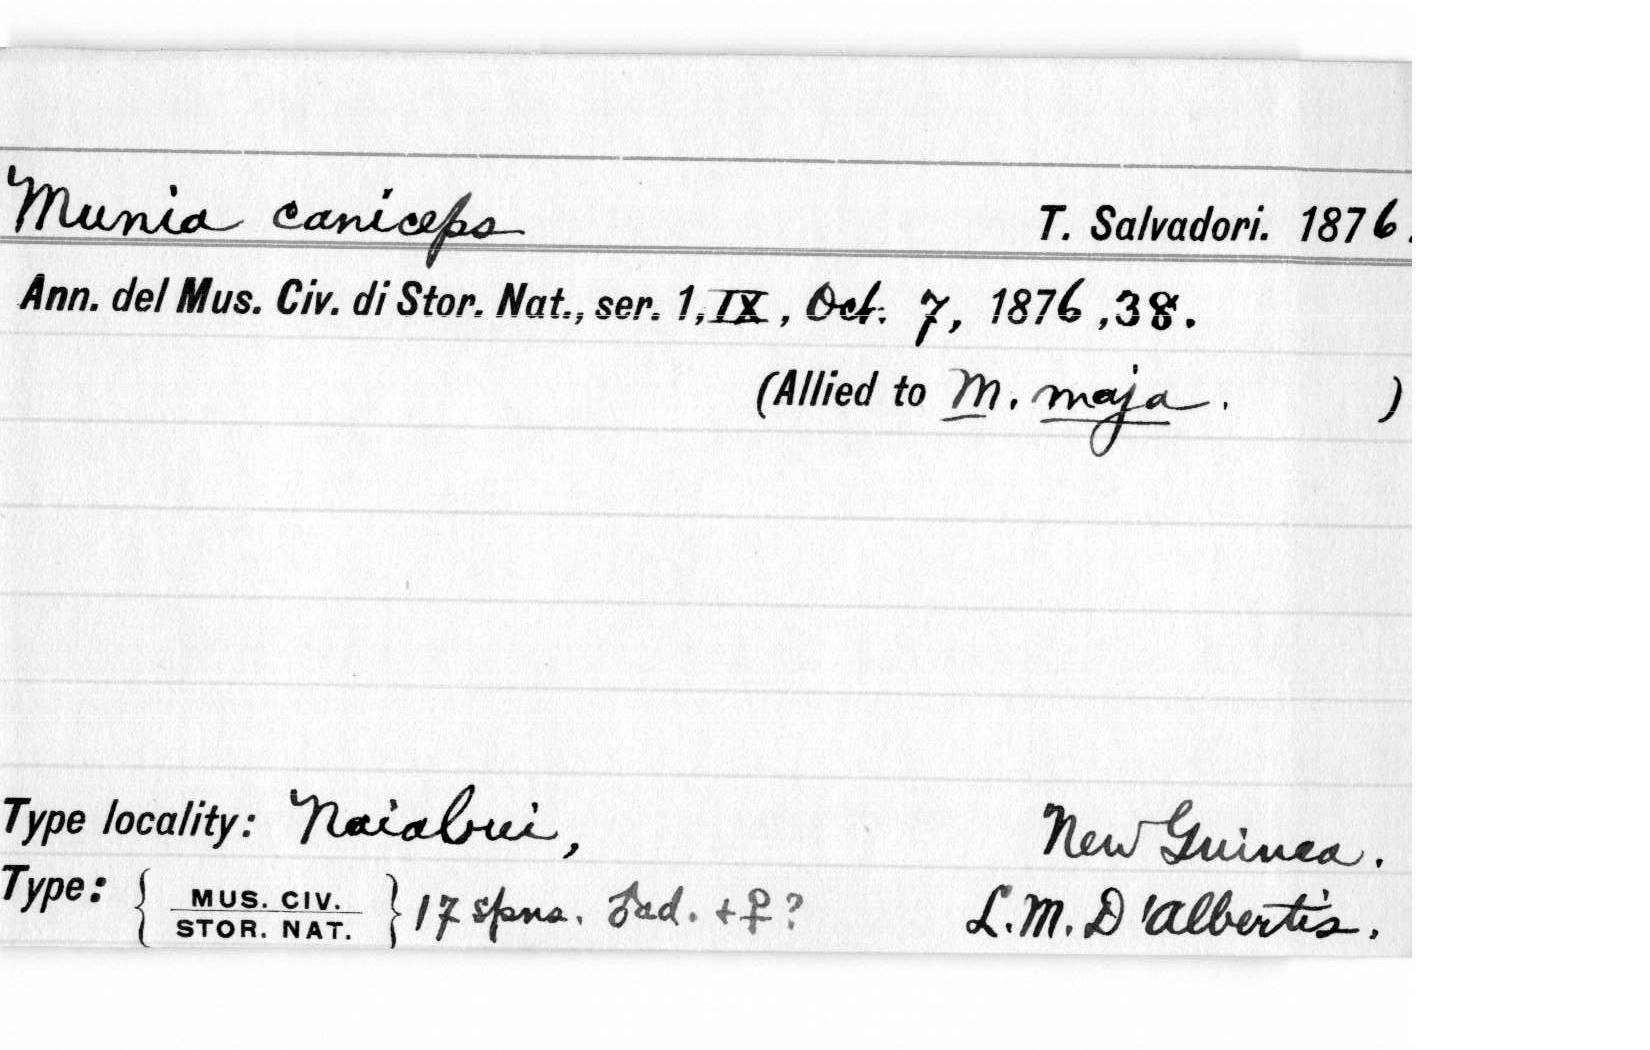 Munia caniceps T. Salvadori. 1876.
Ann. del Mus. Civ. di Stor. Nat., ser. 1, IX, Oct. 7, 1876, 38.
(Allied to M. maja. )
Type locality: Naiabui, New Guinea.
Type: { MUS. CIV. STOR. NAT. } 17 spns. ♂ ad. + ♀ ? L. M. D'Albertis.